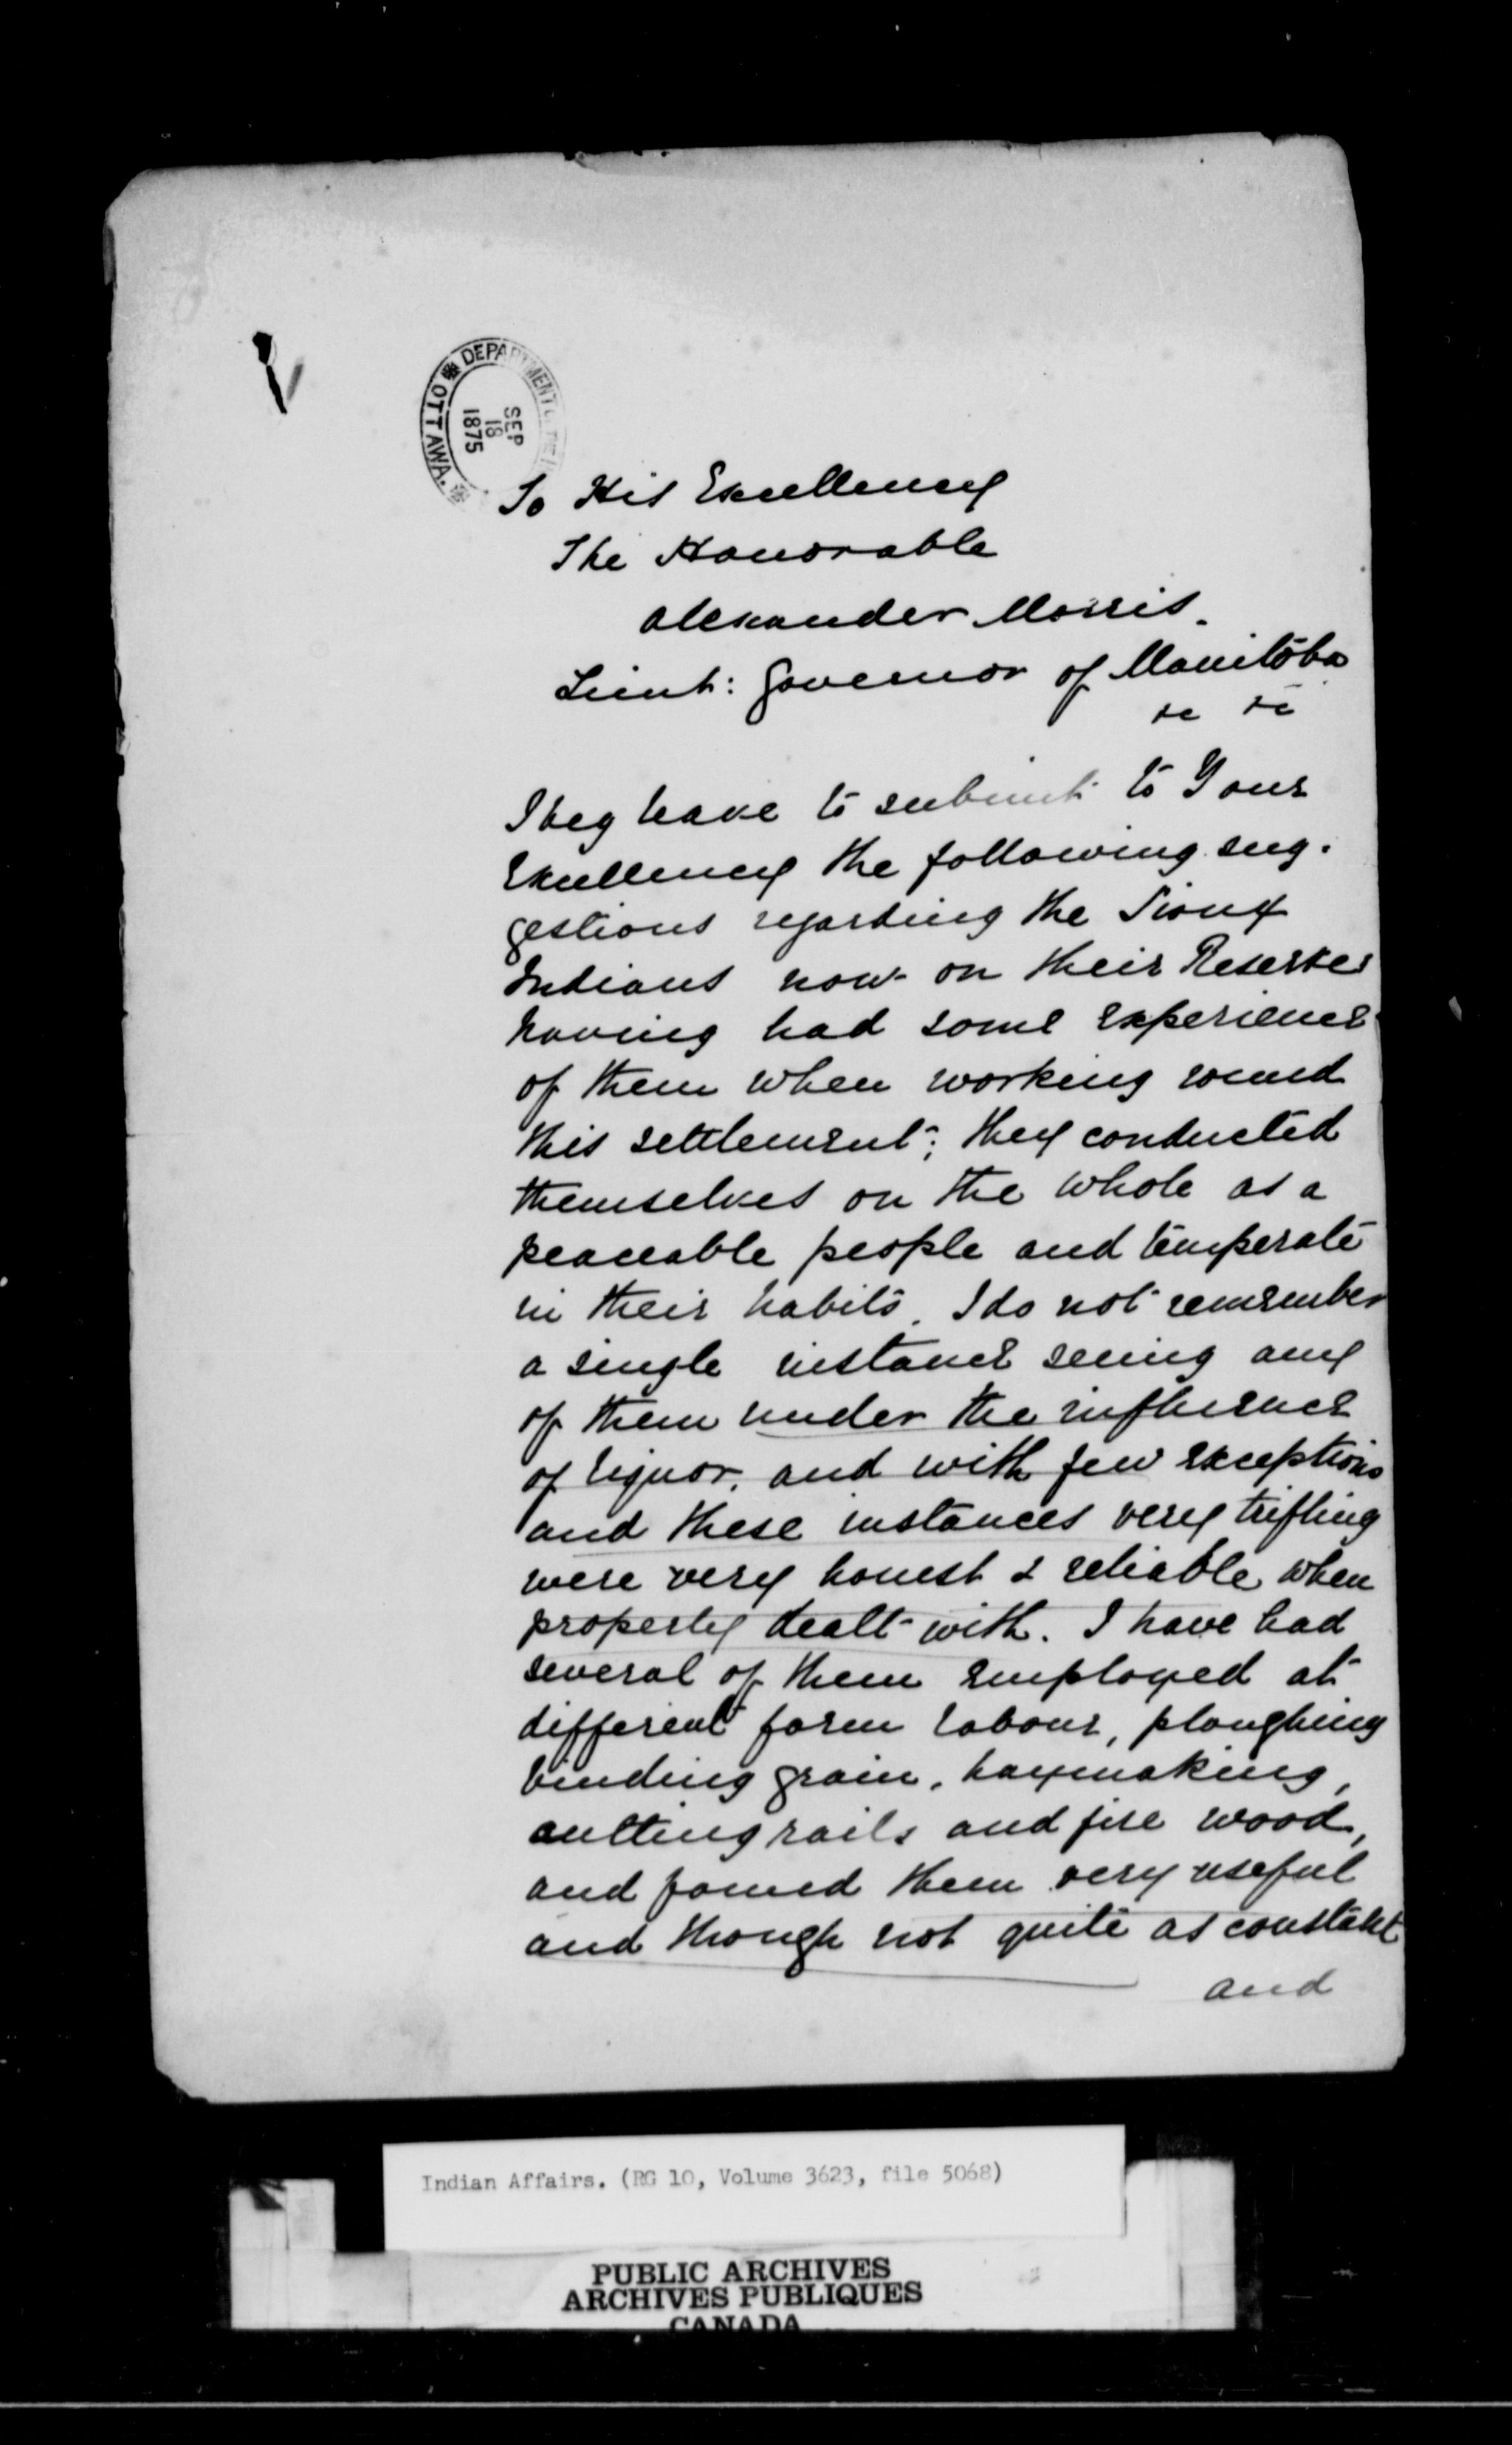 DEPARTMENT OF THE
SEP
18
1875
OTTAWA.
To His Excellency
The Honorable
Alexander Morris.
Lieut: Governor of Manitoba
&c &c
I beg leave to submit to Your
Excellency the following sug-
gestions regarding the Sioux
Indians now on their Reserves
having had some experience
of them when working round
this settlement; they conducted
themselves on the whole as a
peaceable people and temperate
in their habits. I do not remember
a single instance seeing any
of them under the influence
of liquor, and with few exceptions
and these instances very trifling
were very honest & reliable when
properly dealt with. I have had
several of them employed at
different farm labour, ploughing
binding grain, haymaking,
cutting rails and fire wood,
and found them very useful
and though not quite as constant
and
Indian Affairs. (RG 10, Volume 3623, file 5068)
PUBLIC ARCHIVES
ARCHIVES PUBLIQUES
CANADA